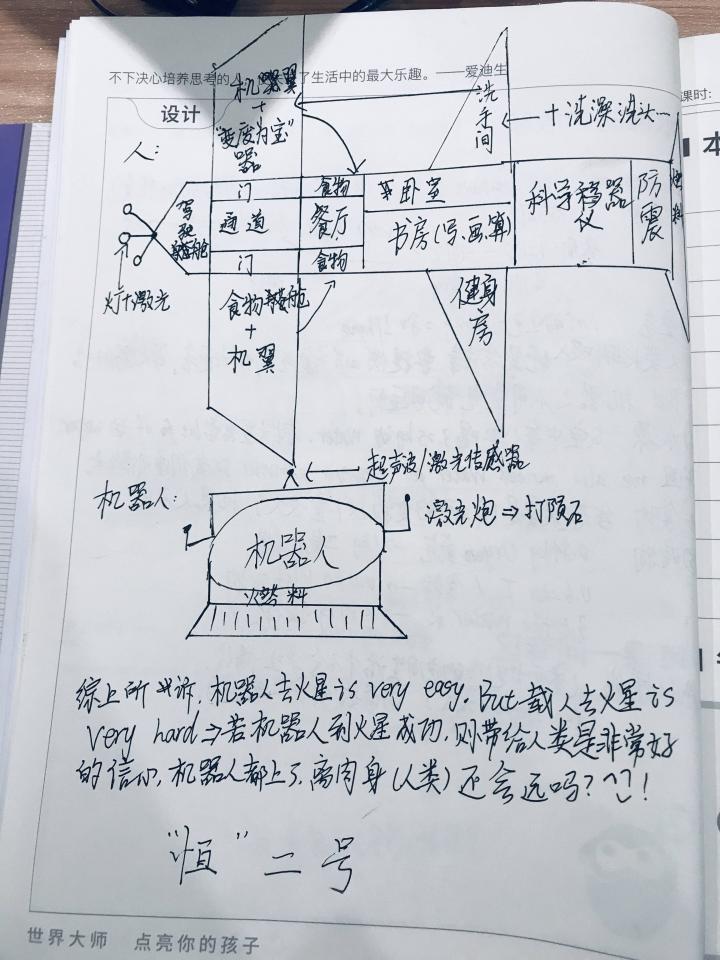 不下决心培养思考的人 了生活中的最大乐趣。——爱迪生
课时:
设计
人:
机器翼
+
"变废为宝"
器
洗手间
+洗澡洗头…
门
食物
卧室
驾驶舱
通道
餐厅
书房(写.画.算)
科学仪器
防震
燃料
门
食物
灯+激光
食物舱
+
机翼
健身房
超声波/激光传感器
机器人:
激光炮⇒打陨石
机器人
燃料
综上所诉,机器人去火星is very easy.But载人去火星is
very hard⇒若机器人到火星成功,则带给人类是非常好
的信心,机器人都上了,离肉身(人类)还会远吗?^^!
"恒"二号
世界大师 点亮你的孩子